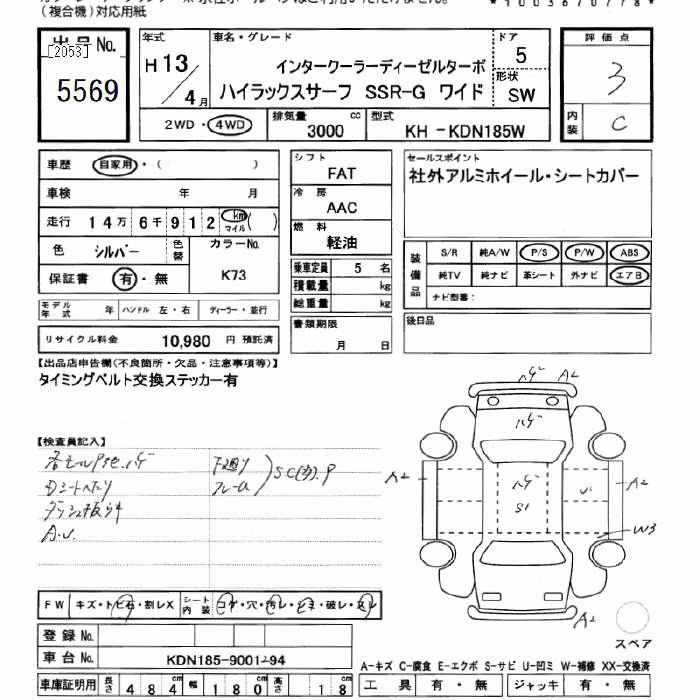 (複合機)対応用紙
出品No.
[2053]
5569
年式
H13/4月
車名・グレード
インタークーラーディーゼルターボ
ハイラックスサーフ SSR-G ワイド
ドア
5
形状
SW
評価点
3
内装
C
2WD・4WD
排気量
3000
cc
型式
KH-KDN185W
車歴
自家用・( )
車検 年 月
走行 14万6千912 km マイル ( )
色
シルバー
色替
カラーNo.
K73
保証書 有・無
シフト
FAT
冷房
AAC
燃料
軽油
乗車定員 5 名
積載量 kg
総重量 kg
書類期限
月 日
セールスポイント
社外アルミホイール・シートカバー
装備品
S/R 純A/W P/S P/W ABS
純TV 純ナビ 革シート 外ナビ エアB
ナビ型番:
後日品
モデル年式 年 ハンドル 左・右 ディーラー・並行
リサイクル料金 10,980 円 預託済
【出品店申告欄(不良箇所・欠品・注意事項等)】
タイミングベルト交換ステッカー有
【検査員記入】
下廻り
フレーム
A.U.
A2
A2
A2
A2
W3
S1
U1
FW キズ・トビ石・割レX シート内装 コゲ・穴・汚レ・シミ・破レ・スレ
登録No.
車台No. KDN185-9001294
車庫証明用 長さ 484 cm 幅 180 cm 高さ 18 cm
スペア
A-キズ C-腐食 E-エクボ S-サビ U-凹ミ W-補修 XX-交換済
工具 有・無 ジャッキ 有・無